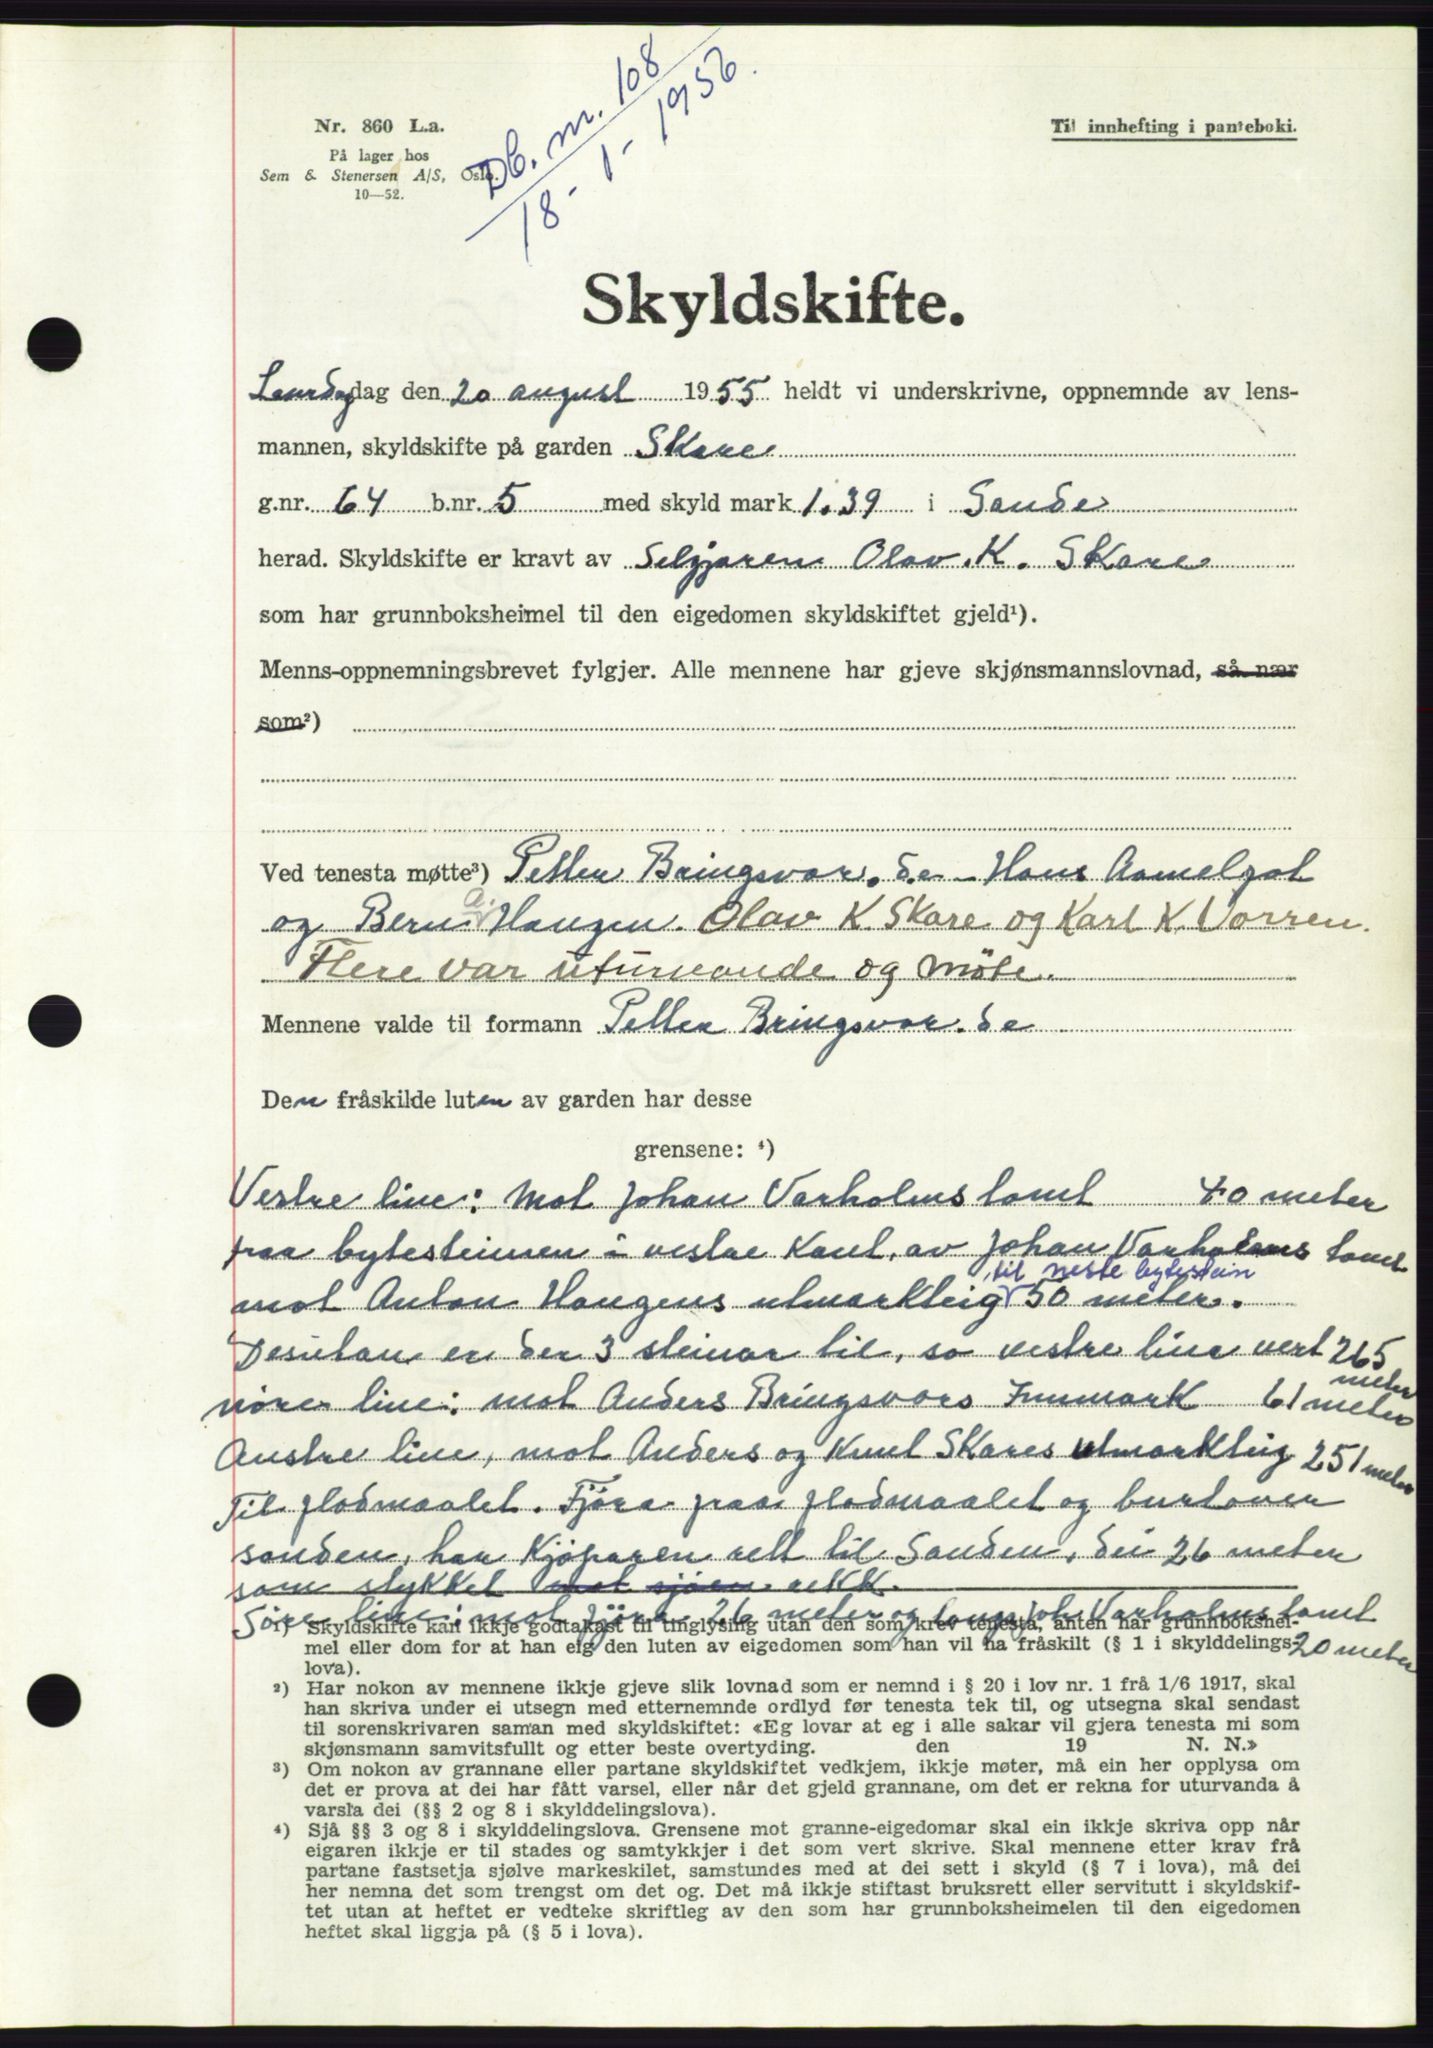 Nr. 860 L.a.
På lager hos
Sem & Stenersen A/S, Oslo.
10—52.
Db. nr. 108
18-1-1956.
Til innhefting i panteboki.
Skyldskifte.
Laurdagdag den 20 august 1955 heldt vi underskrivne, oppnemnde av lens-
mannen, skyldskifte på garden Skare
g.nr. 64 b.nr. 5 med skyld mark 1.39 i Sande
herad. Skyldskifte er kravt av Selgjaren Olav. K. Skare
som har grunnboksheimel til den eigedomen skyldskiftet gjeld¹).
Menns-oppnemningsbrevet fylgjer. Alle mennene har gjeve skjønsmannslovnad, så nær
som²)
Ved tenesta møtte³) Petter Bringsvor. d.e. - Hans Aamelgot
og Bernt A. Haugen. Olav K. Skare og Karl K. Vorren.
Flere var uturvande og møte.
Mennene valde til formann Petter Bringsvor. d e
Den fråskilde luten av garden har desse
grensene: ⁴)
Vestre line: Mot Johan Varholms tomt 40 meter
fraa bytesteinen i vestre Kant, av Johan Varholms tomt
mot Anton Haugens utmarkteig til neste bytestein 50 meter.
Desutan er der 3 steinar til, so vestre line vert 265 meter
nöre line: mot Anders Bringsvors Innmark 61 meter
Austre line, mot Anders og Knut Skares utmarkteig 251 meter
Til flodmaalet. Fjöra fraa flodmaalet og burtover
sanden, har Kjöparen rett til Sanden, dei 26 meter
som stykket mot sjöen rekk.
Söre line: mot fjöra 26 meter og langs Joh. Varholms tomt
20 meter
¹) Skyldskifte kan ikkje godtakast til tinglysing utan den som krev tenesta, anten har grunnbokshei-
mel eller dom for at han eig den luten av eigedomen som han vil ha fråskilt (§ 1 i skylddelings-
lova).
²) Har nokon av mennene ikkje gjeve slik lovnad som er nemnd i § 20 i lov nr. 1 frå 1/6 1917, skal
han skriva under ei utsegn med etternemnde ordlyd før tenesta tek til, og utsegna skal sendast
til sorenskrivaren saman med skyldskiftet: «Eg lovar at eg i alle sakar vil gjera tenesta mi som
skjønsmann samvitsfullt og etter beste overtyding. den 19 N. N.»
³) Om nokon av grannane eller partane skyldskiftet vedkjem, ikkje møter, må ein her opplysa om
det er prova at dei har fått varsel, eller når det gjeld grannane, om det er rekna for uturvanda å
varsla dei (§§ 2 og 8 i skylddelingslova).
⁴) Sjå §§ 3 og 8 i skylddelingslova. Grensene mot granne-eigedomar skal ein ikkje skriva opp når
eigaren ikkje er til stades og samtykkjer i det som vert skrive. Skal mennene etter krav frå
partane fastsetja sjølve markeskilet, samstundes med at dei sett i skyld (§ 7 i lova), må dei
her nemna det som trengst om det og. Det må ikkje stiftast bruksrett eller servitutt i skyldskif-
tet utan at heftet er vedteke skriftleg av den som har grunnboksheimelen til den eigedomen
heftet skal liggja på (§ 5 i lova).